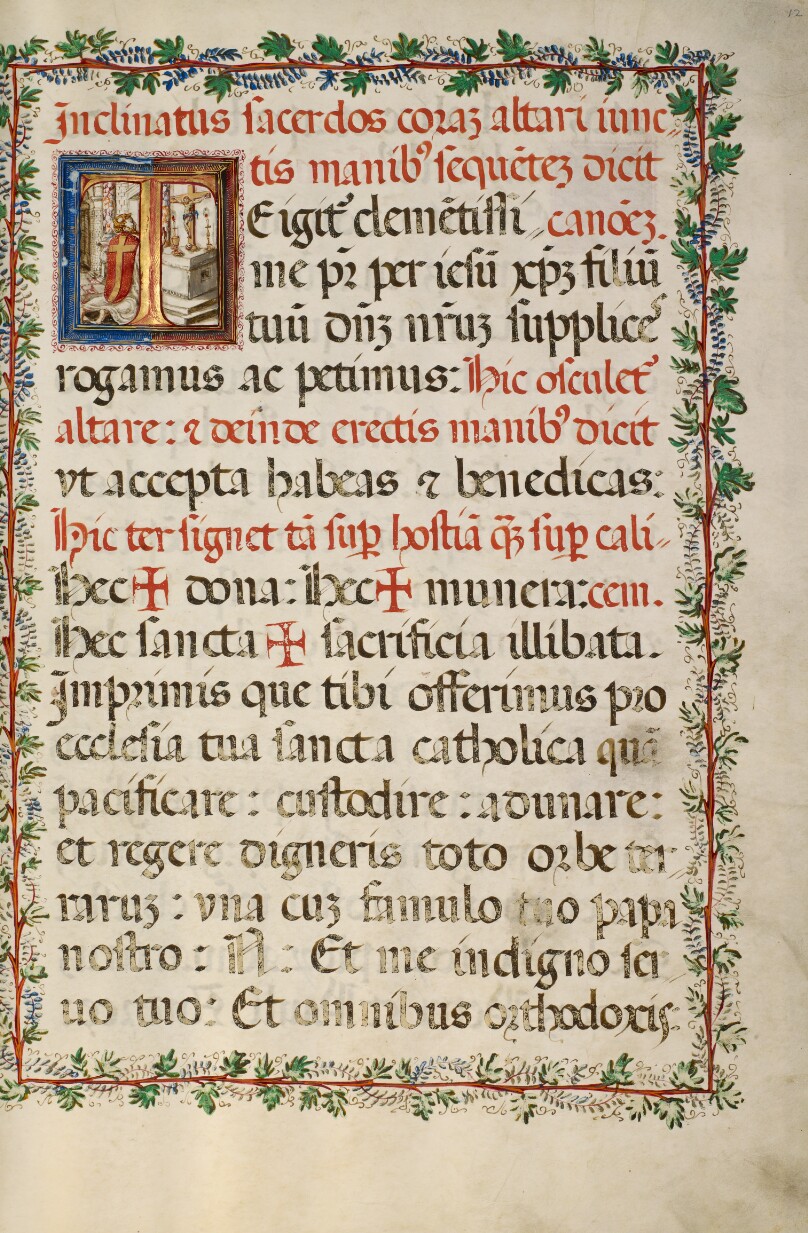 12
Inclinatus sacerdos coraꝫ altari iunc⸗
tis manibꝰ sequētēꝫ dicit
TE igit᷑ clemētissi⸗ canōeꝫ.
me pr̄ per iesū xp̄ꝫ filiū
tuū dn̄ꝫ nr̄uꝫ supplice᷒
rogamus ac petimus: Hic osculet᷑
altare: ⁊ deinde erectis manibꝰ dicit
vt accepta habeas ⁊ benedicas:
Hic ter signet tā suꝑ hostiā qꝫ̄ suꝑ cali⸗
Hec ✠ dona: Hec ✠ munera: cem.
Hec sancta ✠ sacrificia illibata.
Imprimis que tibi offerimus pro
ecclesia tua sancta catholica quā
pacificare: custodire: adunare:
et regere digneris toto orbe ter
raruꝫ: vna cuꝫ famulo tuo papa
nostro: N: Et me indigno ser
uo tuo: Et omnibus orthodoxis: